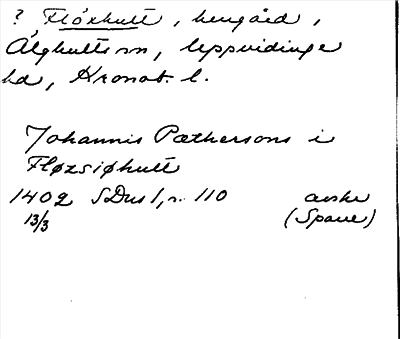 ? Flöxhult, herrgård,
Älghults sn, Uppvidinge
hd, Kronob. l.
Johannis Pæthersons i
Fløxsiøhult
1402 SDns 1, n. 110 avskr
13/3 (Spare)